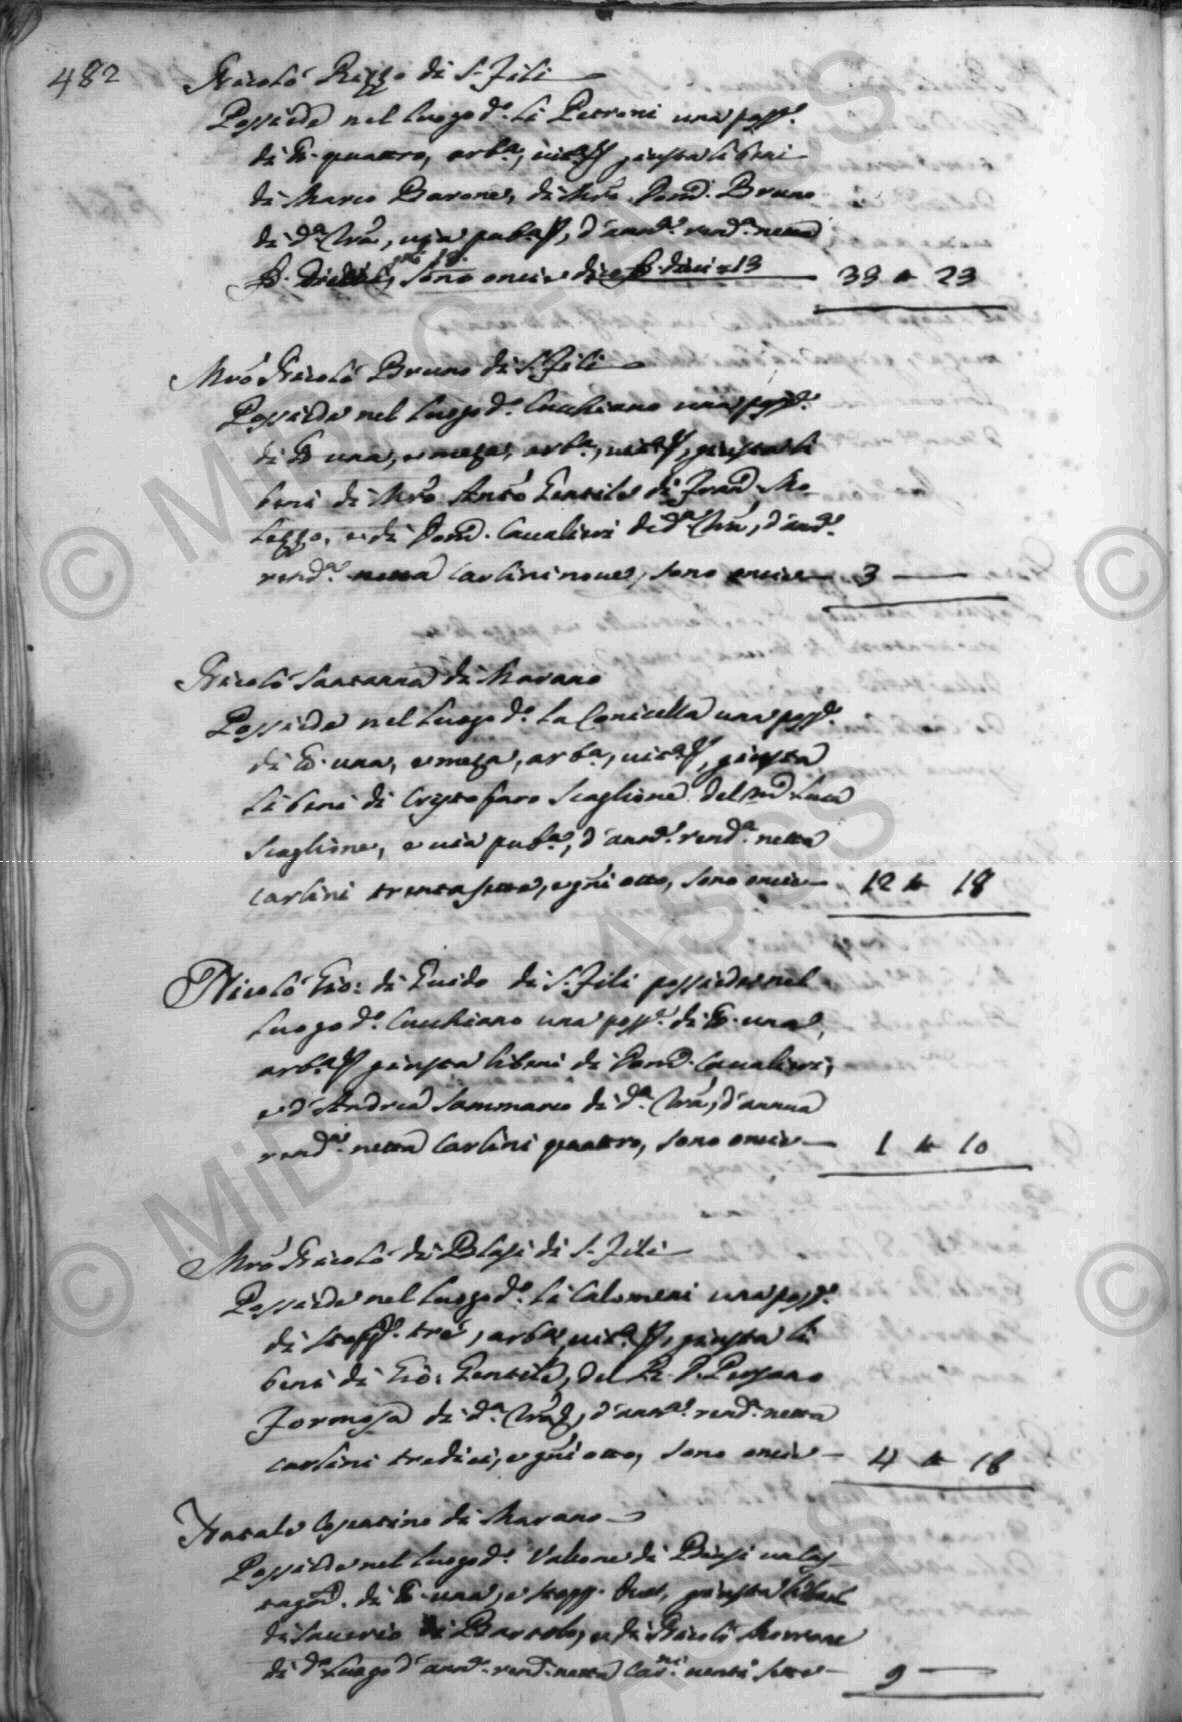 482
Nicolò Rizzo di S. Fili
Possiede nel luogo d.o Li Petroni una poss.e
di quattro, arb.a, vit.a giusta li beni
di Marco Barone, di M.ro Dom.co Bruno
di d.a T.ra, via pub.a, d'ann.l rend.a netta
sono oncie 33 - 23
M.ro Nicolò Bruno di S. Fili
Possiede nel luogo d.o Cucchiano una poss.e
di una, e meza, arb.a, vit.a, giusta li
beni di M.ro Ant.o Gentile di Fran.co Mo
lezzo, e di Dom.co Cavalieri di d.a T.ra, d'ann.l
rend.a netta carlini nove, sono oncie 3 —
Nicolò Santanna di Marano
Possiede nel luogo d.o La Conicella una poss.e
di una, e meza, arb.a, vit.a, giusta
li beni di Cristofaro Scaglione del m.co Luca
Scaglione, e via pub.a, d'ann.l rend.a netta
carlini trentasette, e g.ni otto, sono oncie 12 - 18
Nicolò Gio: di Guido di S. Fili possiede nel
luogo d.o Cucchiano una poss.e di una,
arb.a giusta li beni di Dom.co Cavalieri,
e d'Andrea Sammarco di d.a T.ra, d'annua
rend.a netta carlini quattro, sono oncie 1 - 10
M.ro Nicolò di Blasi di S. Fili
Possiede nel luogo d.o Li Calomeni una poss.e
di stopp.e tre, arb.a vit.a, giusta li
beni di Gio: Gentile, del R. D.
Formosa di d.a T.ra, d'ann.l rend.a netta
carlini tredici, e g.ni otto, sono oncie 4 - 18
Natale Cosentino di Marano
Possiede nel luogo d.o Valione di Biasi un cas
tag.to di una, e stopp. due, giusta li beni
di Saverio di Bartolo, e di Nicolò Morrone
di d.o luogo d'ann.l rend.a netta car.ni venti sette 9 —